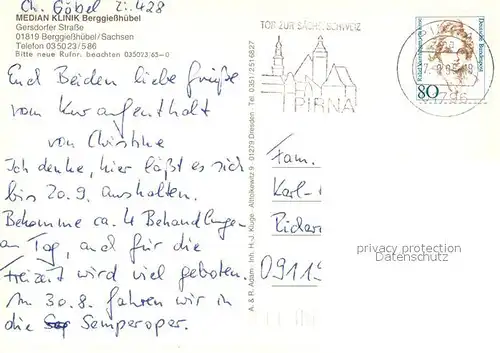 Ch. Göbel Zi. 428
MEDIAN KLINIK Berggießhübel
Gersdorfer Straße
01819 Berggießhübel/Sachsen
Telefon 035023/586
Bitte neue Rufnr. beachten 035023/65-0
Euch Beiden liebe Grüße
vom Kuraufenthalt
von Christine
Ich denke, hier läßt es sich
bis 20.9. aushalten.
Bekomme ca. 4 Behandlungen
am Tag, und für die
Freizeit wird viel geboten.
Am 30.8. fahren wir in
die Semperoper.
A. & R. Adam · Inh. H.-J. Kluge · Alttolkewitz 9 · 01279 Dresden · Tel. 0351/2516827
TOR ZUR SÄCHS. SCHWEIZ
PIRNA
Deutsche Bundespost
80
01796
Fam.
Karl-
0911
privacy protection
Datenschutz